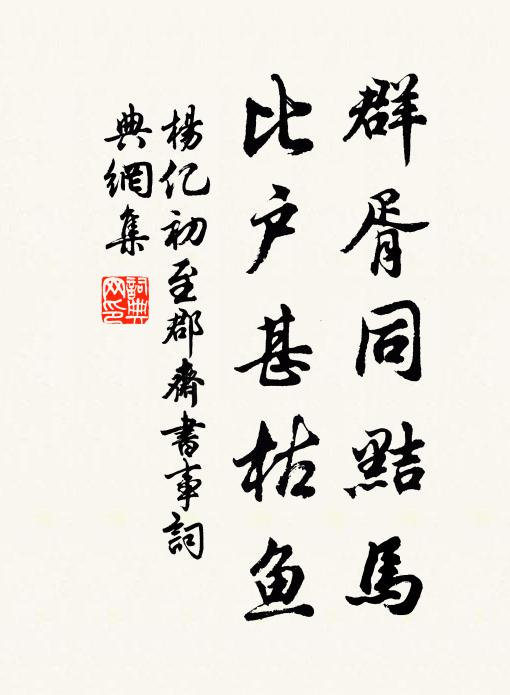 群胥同黠馬
比户甚枯鱼
楊亿初至郡齋書事詞
典網集
詞典网印